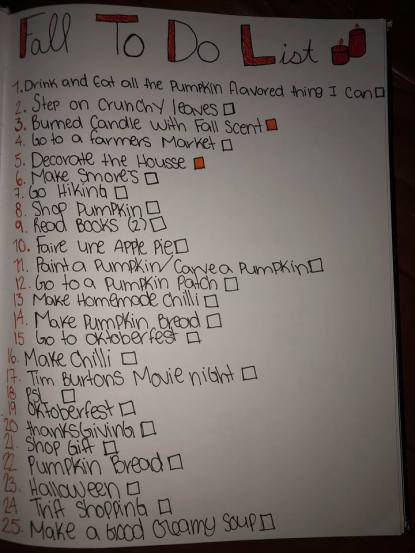 Fall To Do List
1. Drink and Eat all the Pumpkin flavored thing I can
2. Step on crunchy leaves
3. Burned Candle with Fall Scent
4. Go to a farmers Market
5. Decorate the Housse
6. Make Smore's
7. Go Hiking
8. Shop Pumpkin
9. Read Books (2)
10. Faire une Apple Pie
11. Paint a Pumpkin/Carve a Pumpkin
12. Go to a Pumpkin Patch
13 Make Homemade Chilli
14. Make Pumpkin Bread
15 Go to Oktoberfest
16. Make Chilli
17. Tim Burtons Movie night
18 PSL
19 Oktoberfest
20 thanksGiving
21. Shop Gift
22 Pumpkin Bread
23. Halloween
24 Trift Shopping
25. Make a Good Creamy Soup